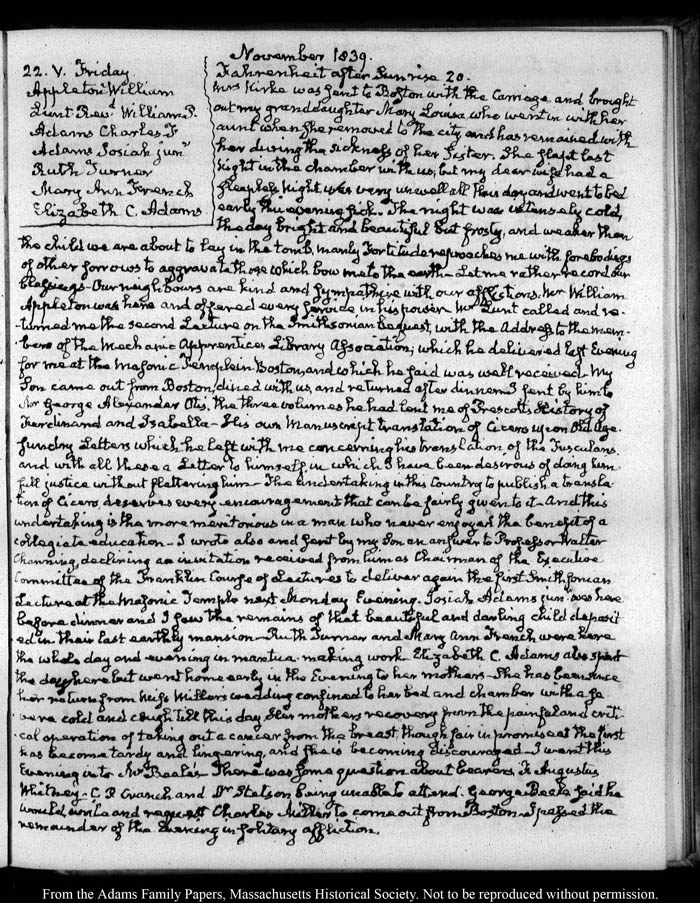 November 1839.
22. V. Friday
Appleton William
Lunt Revd. William P.
Adams Charles F
Adams Josiah junr
Ruth Turner
Mary Ann French
Elizabeth C. Adams.
Fahrenheit after Sunrise 20.
Mrs Kirke was sent to Boston with the Carriage and brought
out my granddaughter Mary Louisa who went in with her
aunt when she removed to the city and has remained with
her during the sickness of her Sister. She slept last
night in the chamber with us, but my dear wife had a
sleepless night, was very unwell all this day and went to bed
early this evening sick. The night was intensely cold,
the day bright and beautiful but frosty, and weaker than
the child we are about to lay in the tomb, manly Fortitude reproaches me with forebodings
of other sorrows to aggravate those which bow me to the earth. Let me rather record our
blessings. Our neighbours are kind and sympathise with our afflictions. Mr William
Appleton was here and offered every service in his power. Mr Lunt called and re-
turned me the second Lecture on the Smithsonian Bequest, with the Address to the mem-
bers of the Mechanic Apprentices Library Association, which he delivered last Evening
for me at the Masonic Temple in Boston, and which he said was well received. My
Son came out from Boston, dined with us, and returned after dinner. I sent by him to
Mr George Alexander Otis, the three volumes he had lent me of Prescott's History of
Ferdinand and Isabella - His own Manuscript translation of Cicero upon Old Age.
Sundry Letters which he left with me concerning his translation of the Tusculans
and with all these a Letter to himself, in which I have been desirous of doing him
full justice without flattering him - The undertaking in this Country to publish a transla-
tion of Cicero, deserves every encouragement that can be fairly given to it - And this
undertaking is the more meritorious in a man who never enjoyed the benefit of a
collegiate education - I wrote also and sent by my Son an answer to Professor Walter
Channing, declining an invitation received from him as Chairman of the Executive
Committee of the Franklin Course of Lectures to deliver again the first Smithsonian
Lecture at the Masonic Temple next Monday Evening. Josiah Adams junr was here
before dinner and I saw the remains of that beautiful and darling child deposit-
ed in their last earthly mansion - Ruth Turner and Mary Ann French were here
the whole day and evening in mantua making work. Elizabeth C. Adams also spent
the day here but went home early in the Evening to her mothers - She has been since
her return from Miss Millers wedding confined to her bed and chamber with a se-
vere cold and cough till this day. Her mothers recovery from the painful and criti-
cal operation of taking out a cancer from the breast, though fair in promise at the first
has become tardy and lingering, and she is becoming discouraged - I went this
Evening in to Mr Beale's. There was some question about bearers, F. Augustus
Whitney - C. P. Cranch and Dr Stetson being unable to attend. George Beale said he
would write and request Charles Miller to come out from Boston. I passed the
remainder of the Evening in solitary affliction.
From the Adams Family Papers, Massachusetts Historical Society. Not to be reproduced without permission.